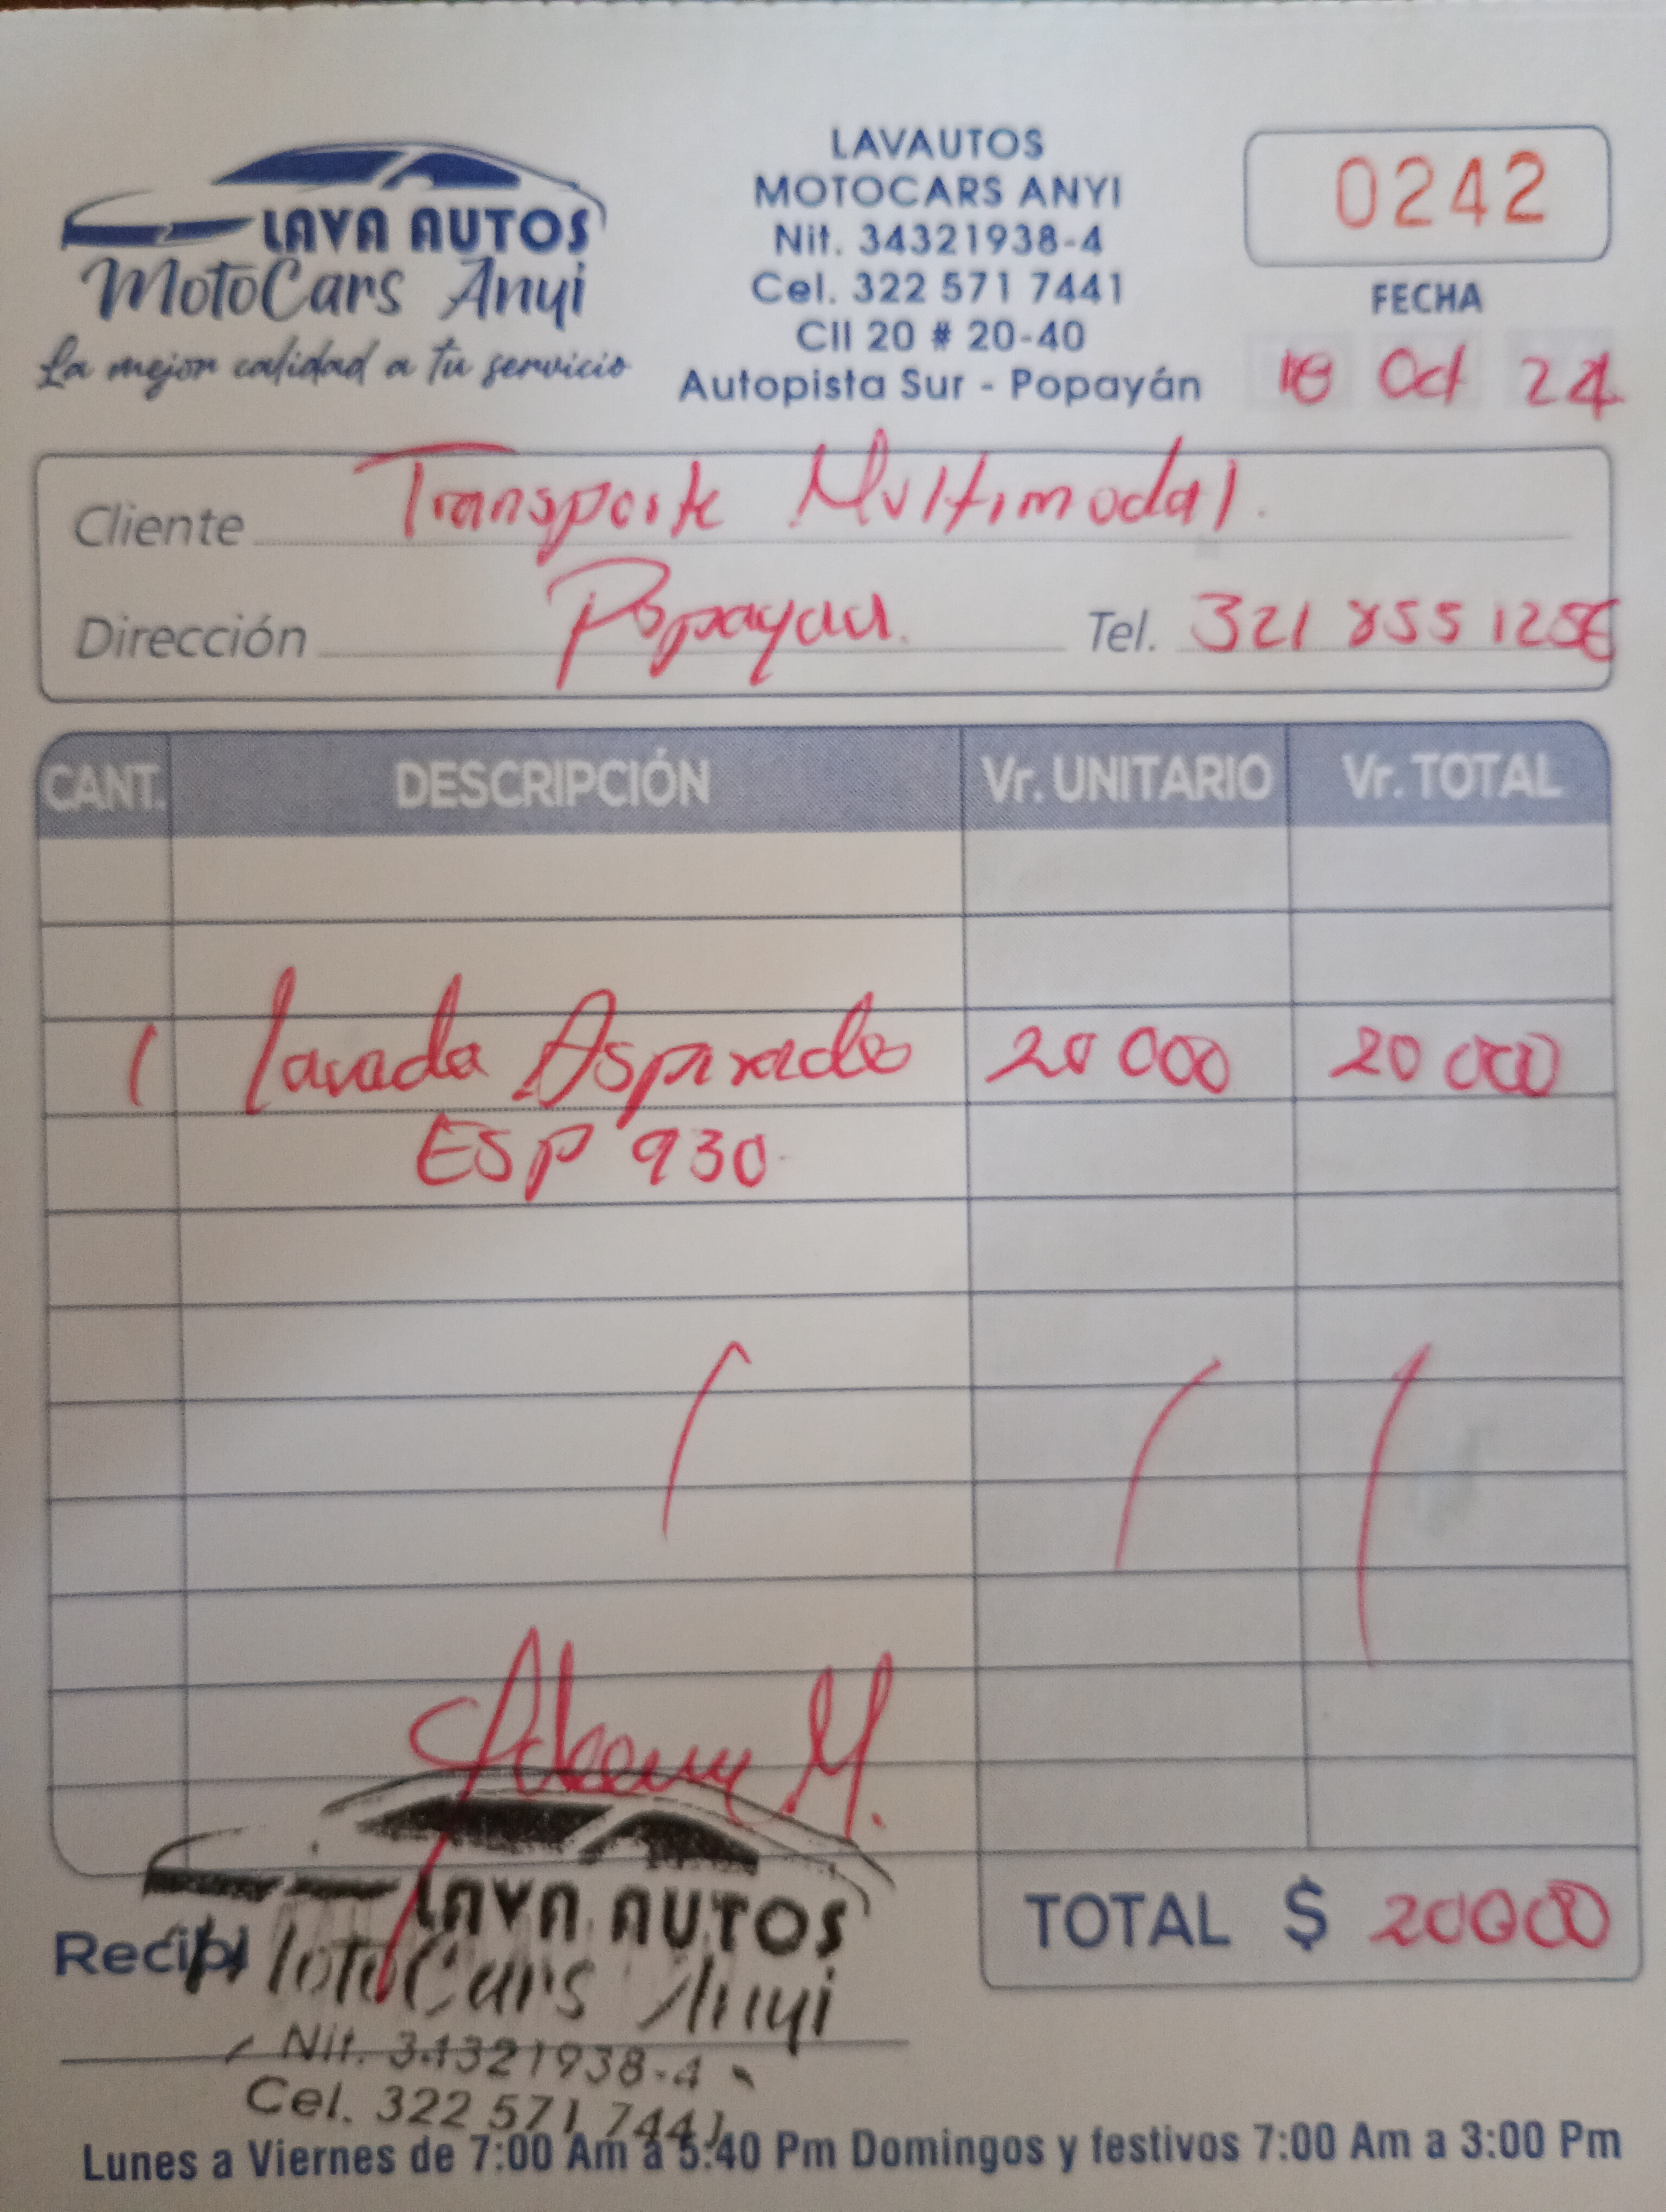 LAVA AUTOS
MotoCars Anyi
La mejor calidad a tu servicio
LAVAUTOS
MOTOCARS ANYI
Nit. 34321938-4
Cel. 322 571 7441
Cll 20 # 20-40
Autopista Sur - Popayán
0242
FECHA
18 Oct 24
Cliente Transporte Multimodal.
Dirección Popayan. Tel. 321 855 1256
CANT. DESCRIPCIÓN Vr. UNITARIO Vr. TOTAL
1 lavada Aspirado 20 000 20 000
ESP 930
LAVA AUTOS
MotoCars Anyi
Nit. 34321938-4
Cel. 322 571 7441
TOTAL $ 20000
Lunes a Viernes de 7:00 Am a 5:40 Pm Domingos y festivos 7:00 Am a 3:00 Pm